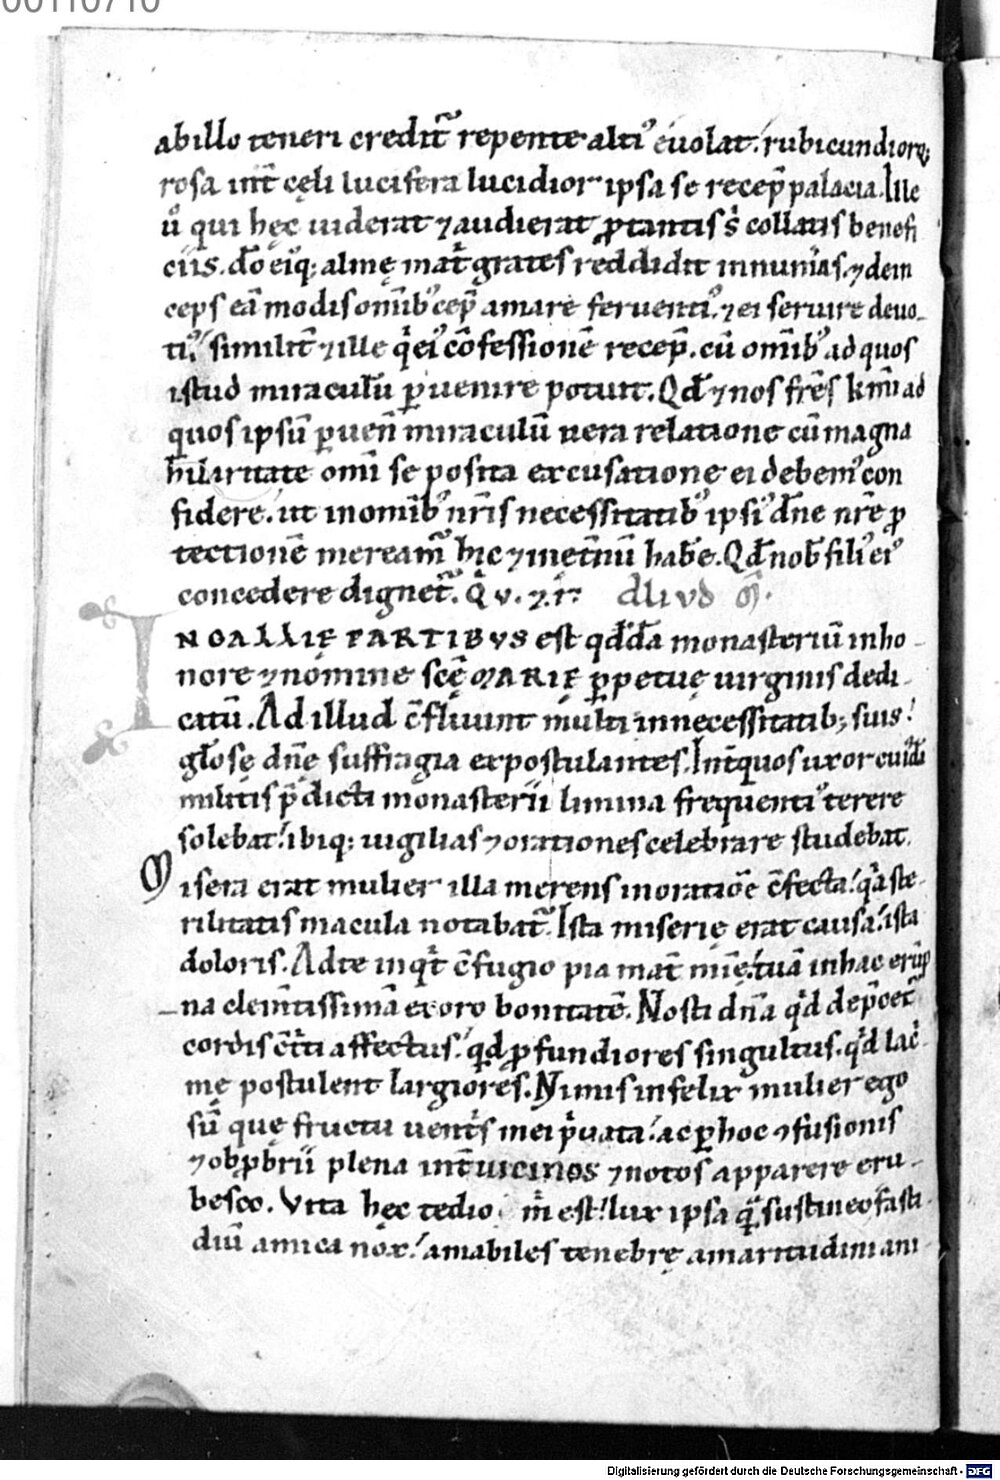 00110710
abillo teneri credit᷑ repente altiꝰ euolat. rubicundiorq;
rosa int̄ cęli lucifera lucidior ipsa se recep̄ palacia. Ille
ů qui hęc uiderat ⁊ audierat ꝓ tantis s̄ collatis benefi
ciis. dō eiꝰq; almę mat̄ grates reddidit innumͥas. ⁊ dein
ceps eā modis om̄ibꝰ cep̄ amare feruentiꝰ. ⁊ ei seruire deuo-
tiꝰ. similit̄ ⁊ ille qͥ eiꝰ cōfessionē recep̄. cū om̄ibꝰ ad quos
istud miraculū ꝑuenire potuit. Qđ ⁊ nos fr̄es km̄i ad
quos ipsū ꝑuen̄ miraculū uera relatione cū magna
hilaritate om̄i se posita excusatione ei debemꝰ con
fidere. ut in om̄ibꝰ nr̄is necessitatibꝰ ipsiꝰ dn̄e nr̄e ꝓ
tectionē meream᷑ hic ⁊ inet̄nū hab̄e. Qđ nob̄ filiꝰ eiꝰ
concedere dignet᷑. Qͥ v. ⁊ r̄. Aliud m̄.
INGALLIĘ PARTIBUS est qđdā monasteriū in ho-
nore ⁊ nomine scę̄ MARIĘ ꝑpetuę uirginis dedi-
catū. Ad illud c̄fluunt multi in necessitatib; suis.
gl̄osę dn̄ę suffragia expostulantes. Int̄ quos uxor cuiͥdā
militis p̄dicti monasterii limina frequentiꝰ terere
solebat. ibiq; uigilias ⁊ orationes celebrare studebat.
Misera erat mulier illa merens in oratiōe c̄fecta. qͥa ste-
rilitatis macula notabat᷑. Ista miserię erat causa. ista
doloris. Ad te inqͥt c̄fugio pia mat̄ mīę. tuā in hac erūp
na clem̄tissimā exoro bonitatē. Nosti dn̄a qͥd dep̄cet᷑
cordis c̄t̄ti affectus. qͥd ꝓfundiores singultus. qͥd lacͥ-
mę postulent largiores. Nimis infelix mulier ego
sū quę fructu uentͥs mei pͥuata. ac ꝑ hoc ⁊fusionis
⁊ obꝓbrii plena int̄ uicinos ⁊ notos apparere eru-
besco. Vita hęc tedio mͥ est. lux ipsa qͣ̄ sustineo fasti-
diū amica nox. amabiles tenebrę amaritudini ani
Digitalisierung gefördert durch die Deutsche Forschungsgemeinschaft - DFG